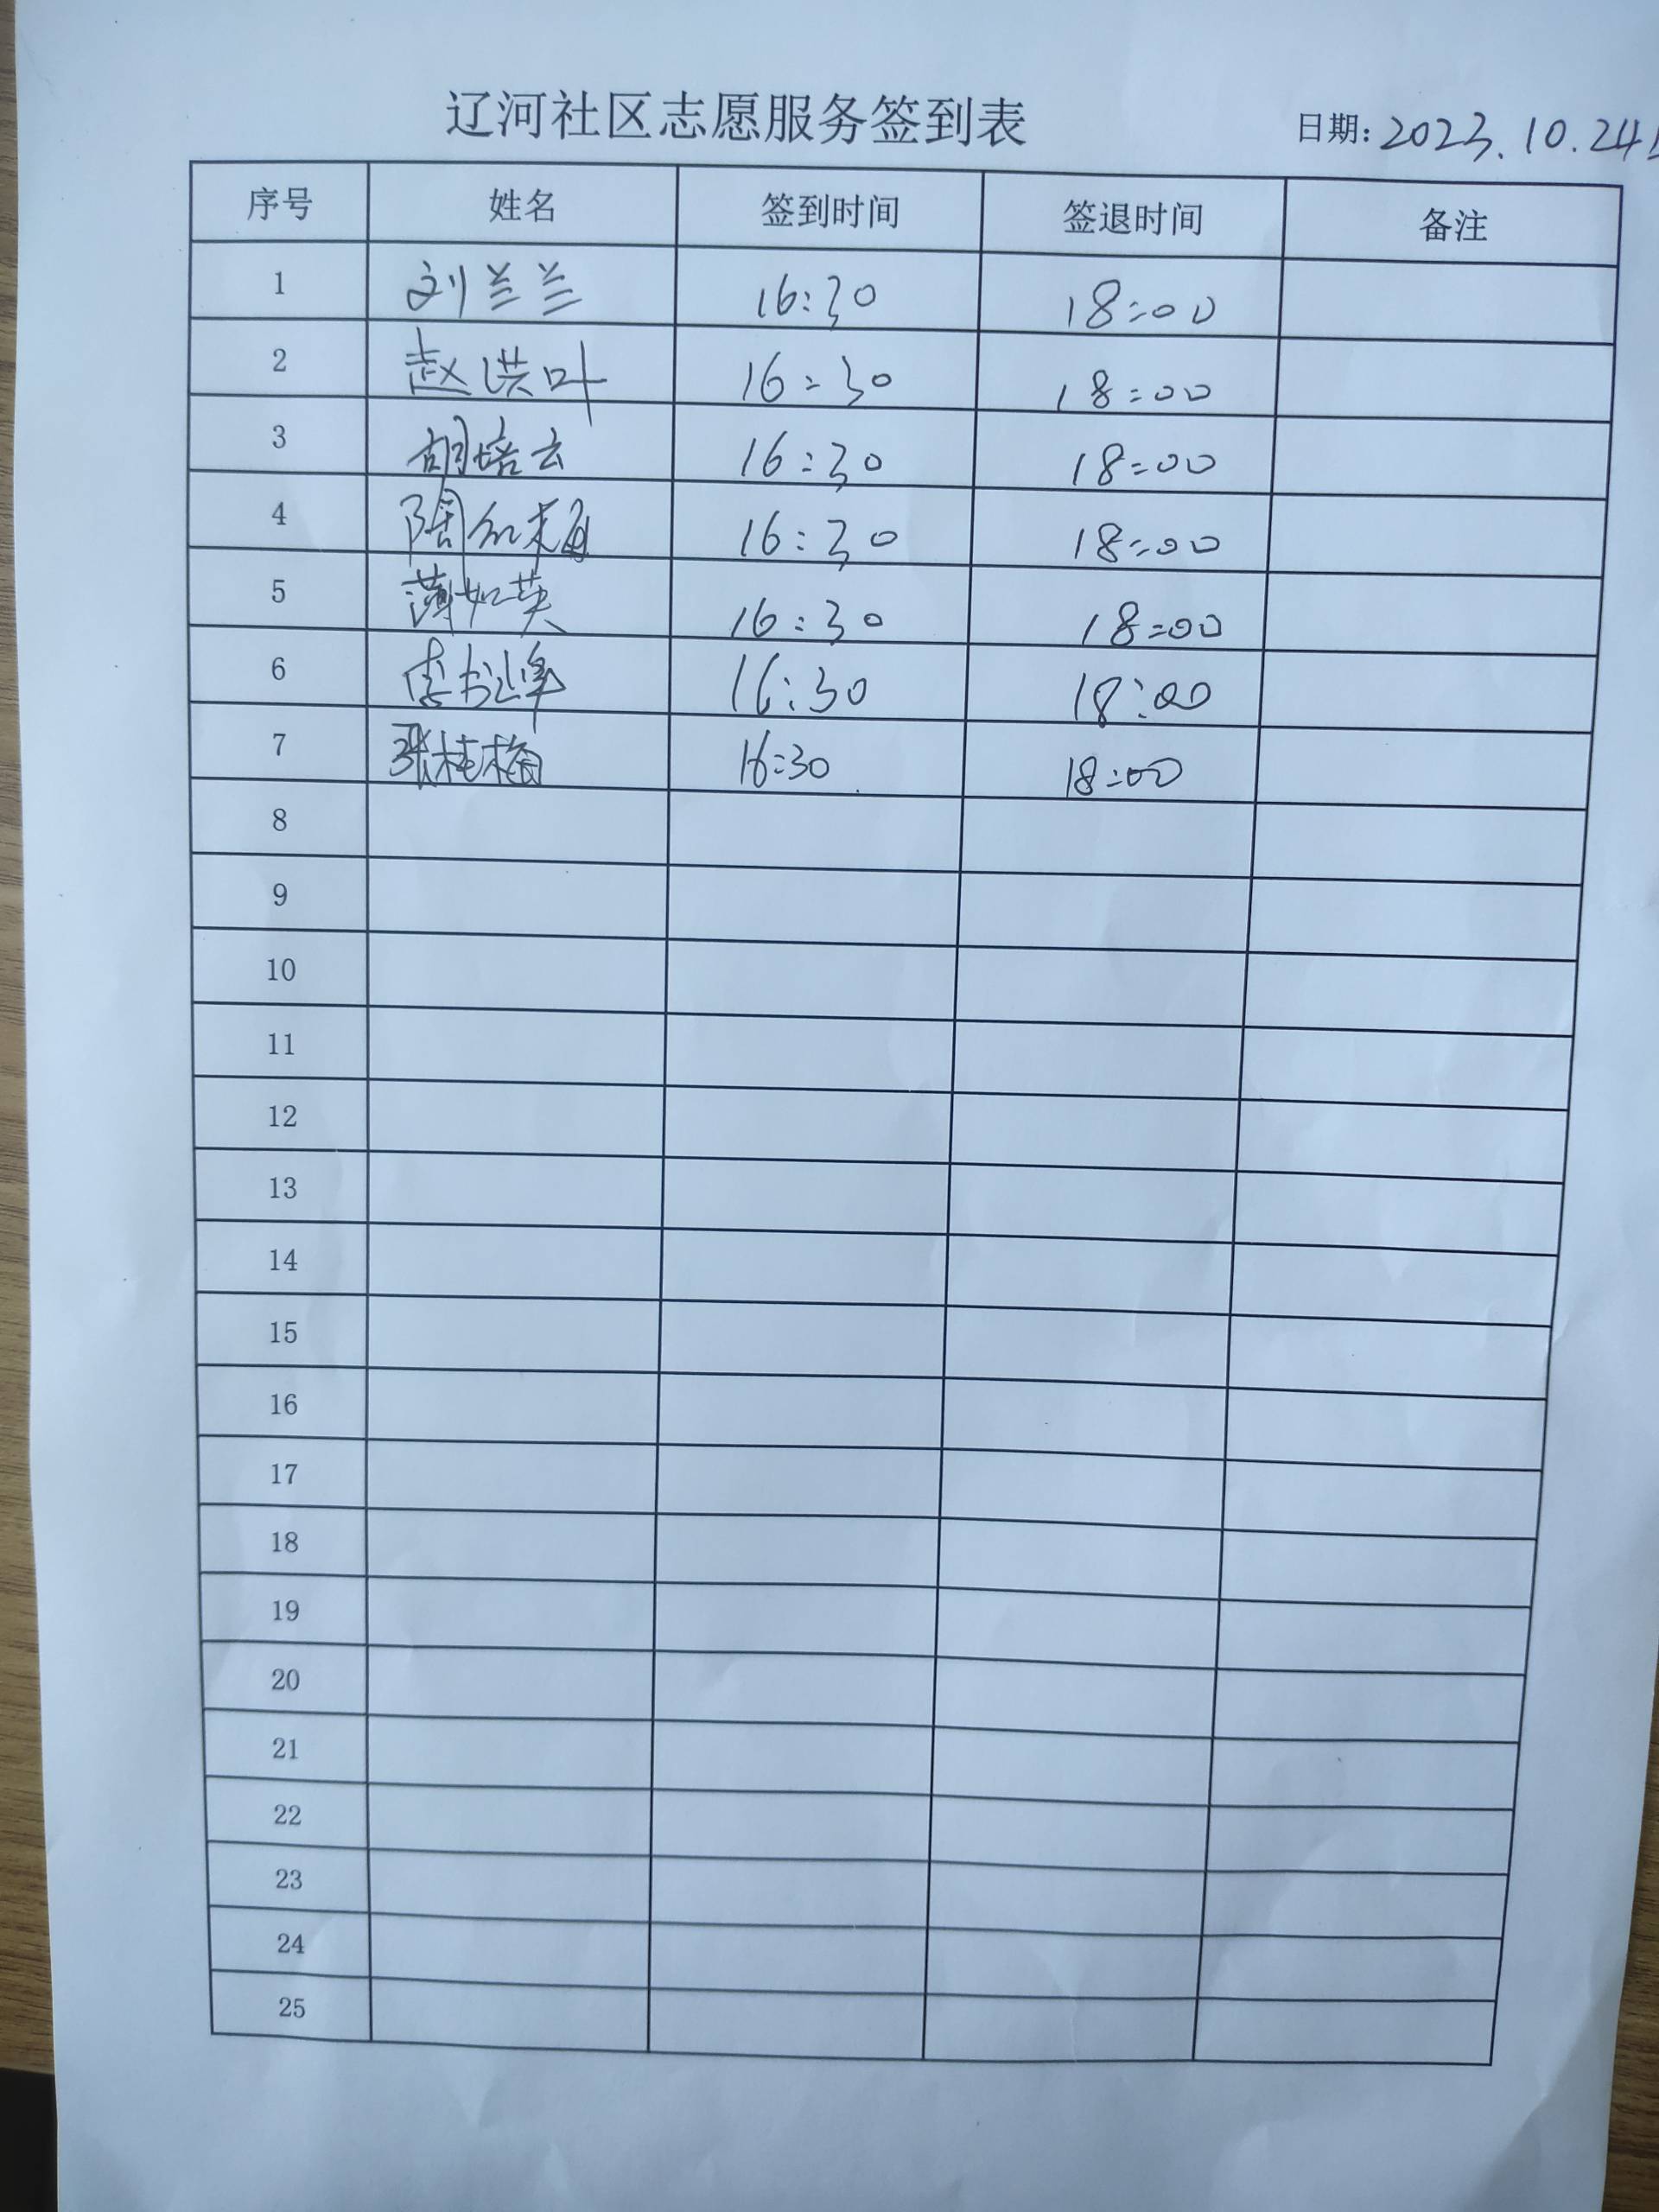 辽河社区志愿服务签到表
日期: 2023.10.24
序号 姓名 签到时间 签退时间 备注
1 刘兰兰 16:30 18:00
2 赵洪叶 16:30 18:00
3 胡培云 16:30 18:00
4 16:30 18:00
5 薄如英 16:30 18:00
6 16:30 18:00
7 张桂梅 16:30 18:00
8
9
10
11
12
13
14
15
16
17
18
19
20
21
22
23
24
25